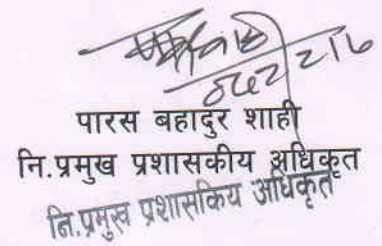 पारस बहादुर शाही
नि.प्रमुख प्रशासकीय अधिकृत
नि.प्रमुख प्रशासकिय अधिकृत